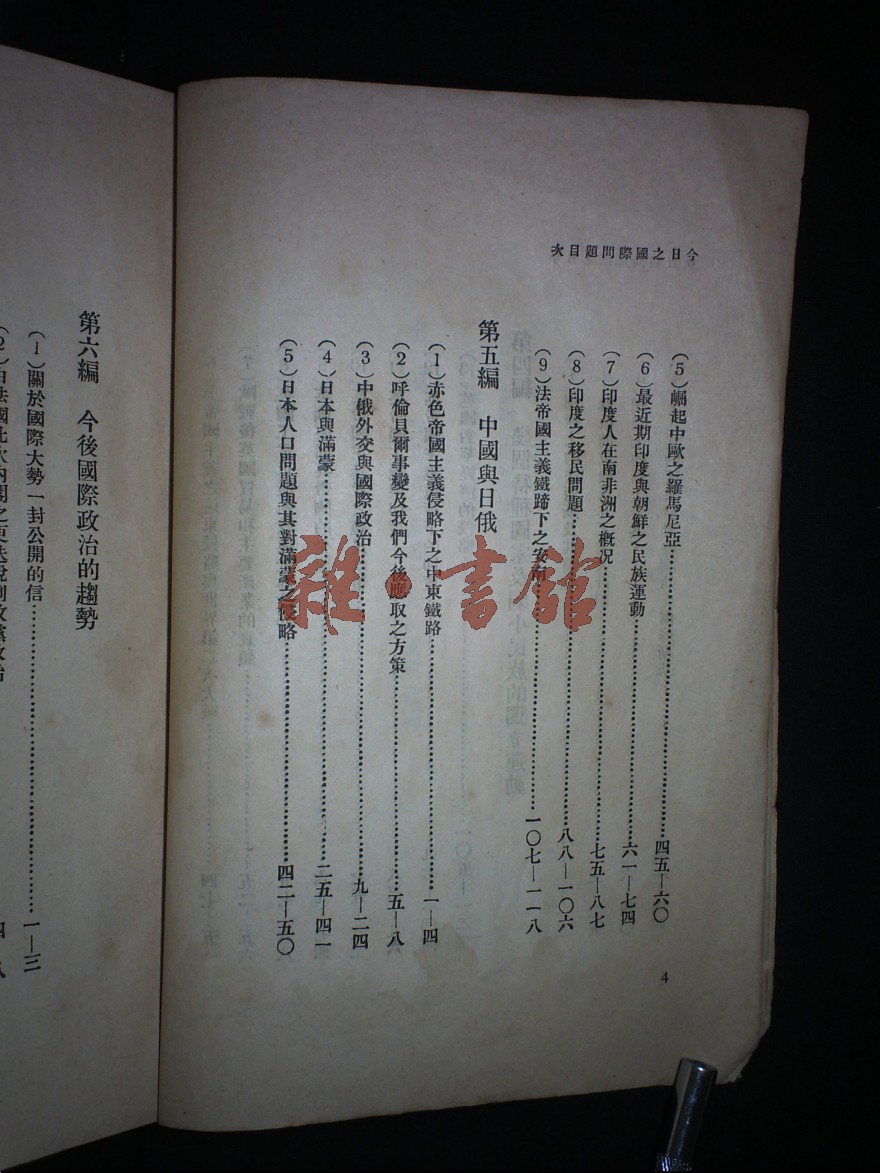 今日之國際問題目次
（5）崛起中歐之羅馬尼亞……四五—六〇
（6）最近期印度與朝鮮之民族運動……六一—七四
（7）印度人在南非洲之概況……七五—八七
（8）印度之移民問題……八八—一〇六
（9）法帝國主義鐵蹄下之安南……一〇七—一一八
第五編　中國與日俄
（1）赤色帝國主義侵略下之中東鐵路……一—四
（2）呼倫貝爾事變及我們今後應取之方策……五—八
（3）中俄外交與國際政治……九—二四
（4）日本與滿蒙……二五—四一
（5）日本人口問題與其對滿蒙之侵略……四二—五〇
4
第六編　今後國際政治的趨勢
（1）關於國際大勢一封公開的信……一—三
雜·書館